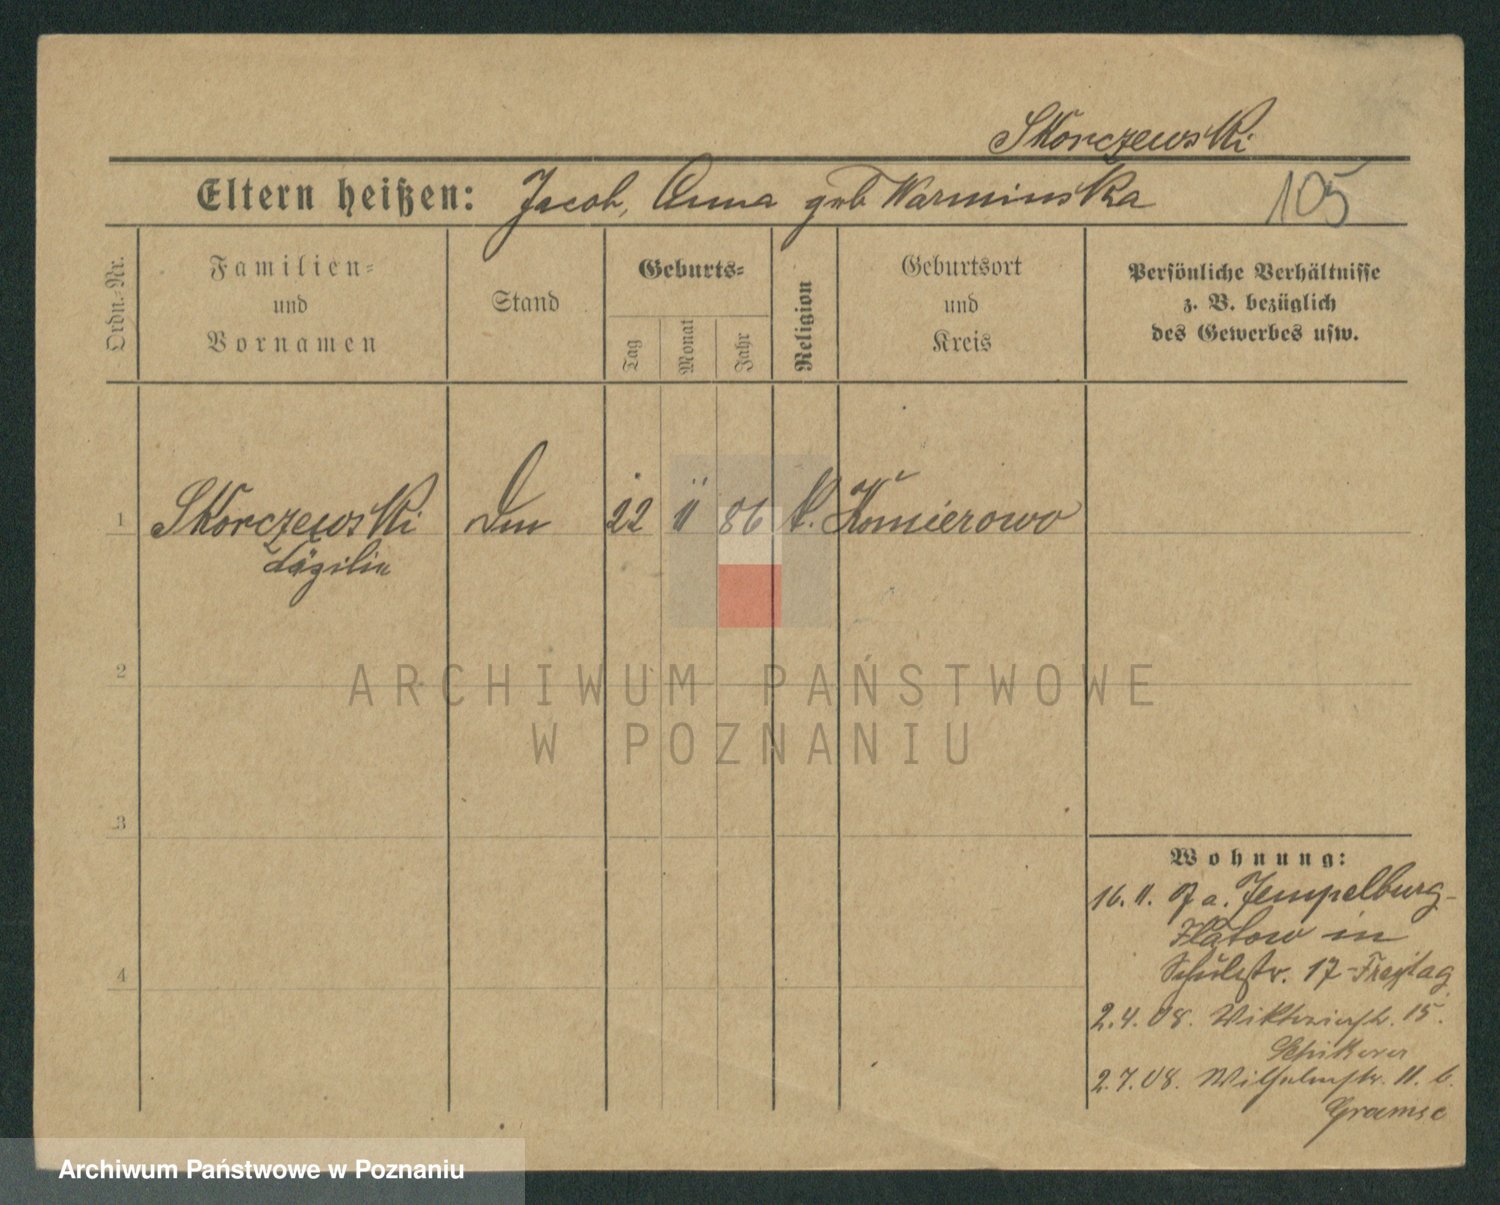 Skorczewski
Eltern heißen: Jacob, Anna geb Warminska 105
Ordn.-Nr.
Familien-
und
Vornamen
Stand
Geburts-
Tag
Monat
Jahr
Religion
Geburtsort
und
Kreis
Persönliche Verhältnisse
z. B. bezüglich
des Gewerbes usw.
1 Skorczewski 22 11 86 k. Komierowo
2
ARCHIWUM PAŃSTWOWE
W POZNANIU
3
4
Wohnung:
16. 11. 07 a. Zempelburg-
Flatow in
Schulstr. 17 Freytag
2.4.08. Wiktoriastr. 15.
2.7.08. Wilhelmstr. 11. b.
Gramse
Archiwum Państwowe w Poznaniu